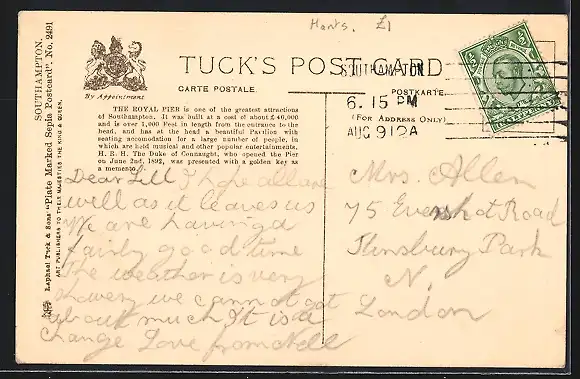 Hants. £1
SOUTHAMPTON.
"Plate Marked Sepia Postcard", No. 2491
Raphael Tuck & Sons'
ART PUBLISHERS TO THEIR MAJESTIES THE KING & QUEEN.
By Appointment
TUCK'S POST CARD
CARTE POSTALE.
POSTKARTE.
(FOR ADDRESS ONLY)
SOUTHAMPTON
6. 15 PM
AUG 9 12A
THE ROYAL PIER is one of the greatest attractions
of Southampton. It was built at a cost of about £40,000
and is over 1,000 Feet in length from the entrance to the
head, and has at the head a beautiful Pavilion with
seating accomodation for a large number of people, in
which are held musical and other popular entertainments,
H. R. H. The Duke of Connaught, who opened the Pier
on June 2nd, 1892, was presented with a golden key as
a memento.
Dear Lill I hope all are
well as it leaves us
We are having a
fairly good time
the weather is very
showery we cannot get
about much It is a
change Love from Nell
Mrs. Allen
75 Evershot Road
Finsbury Park
N.
London